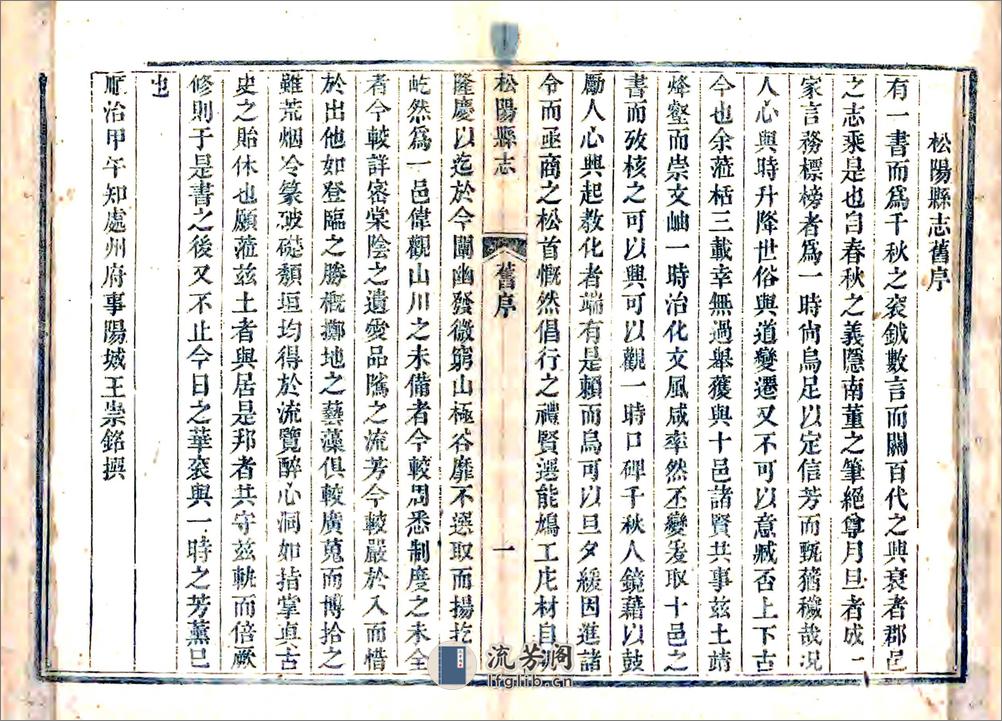 松陽縣志舊序
有一書而爲千秋之袞鉞數言而關百代之興衰者郡邑
之志乘是也自春秋之義隱南董之筆絕尊月旦者成一
家言務標榜者爲一時尙烏足以定信芳而甄蕕穢哉况
人心與時升降世俗與道變遷又不可以意臧否上下古
今也余蒞栝三載幸無過舉獲與十邑諸賢共事兹土靖
烽壑而崇文岫一時治化文風咸率然丕變爰取十邑之
書而攷核之可以興可以觀一時口碑千秋人鏡藉以鼓
勵人心興起敎化者端有是賴而烏可以旦夕緩因進諸
令而亟商之松首慨然倡行之禮賢選能鳩工庀材自
松陽縣志
舊序
一
隆慶以迄於今闡幽發微窮山極谷靡不選取而揚扢
屹然爲一邑偉觀山川之未備者今較周悉制度之未全
者今較詳密棠陰之遺愛品隲之流芳今較嚴於入而惜
於出他如登臨之勝槪擲地之藝藻俱較廣蒐而博拾之
雖荒烟冷篆破磋頹垣均得於流覽醉心洞如指掌眞古
史之貽休也願蒞兹土者與居是邦者共守兹軼而倍厥
修則于是書之後又不止今日之華袞與一時之芳薰已
也
順治甲午知處州府事陽城王崇銘撰
流芳阁
lfglib.cn